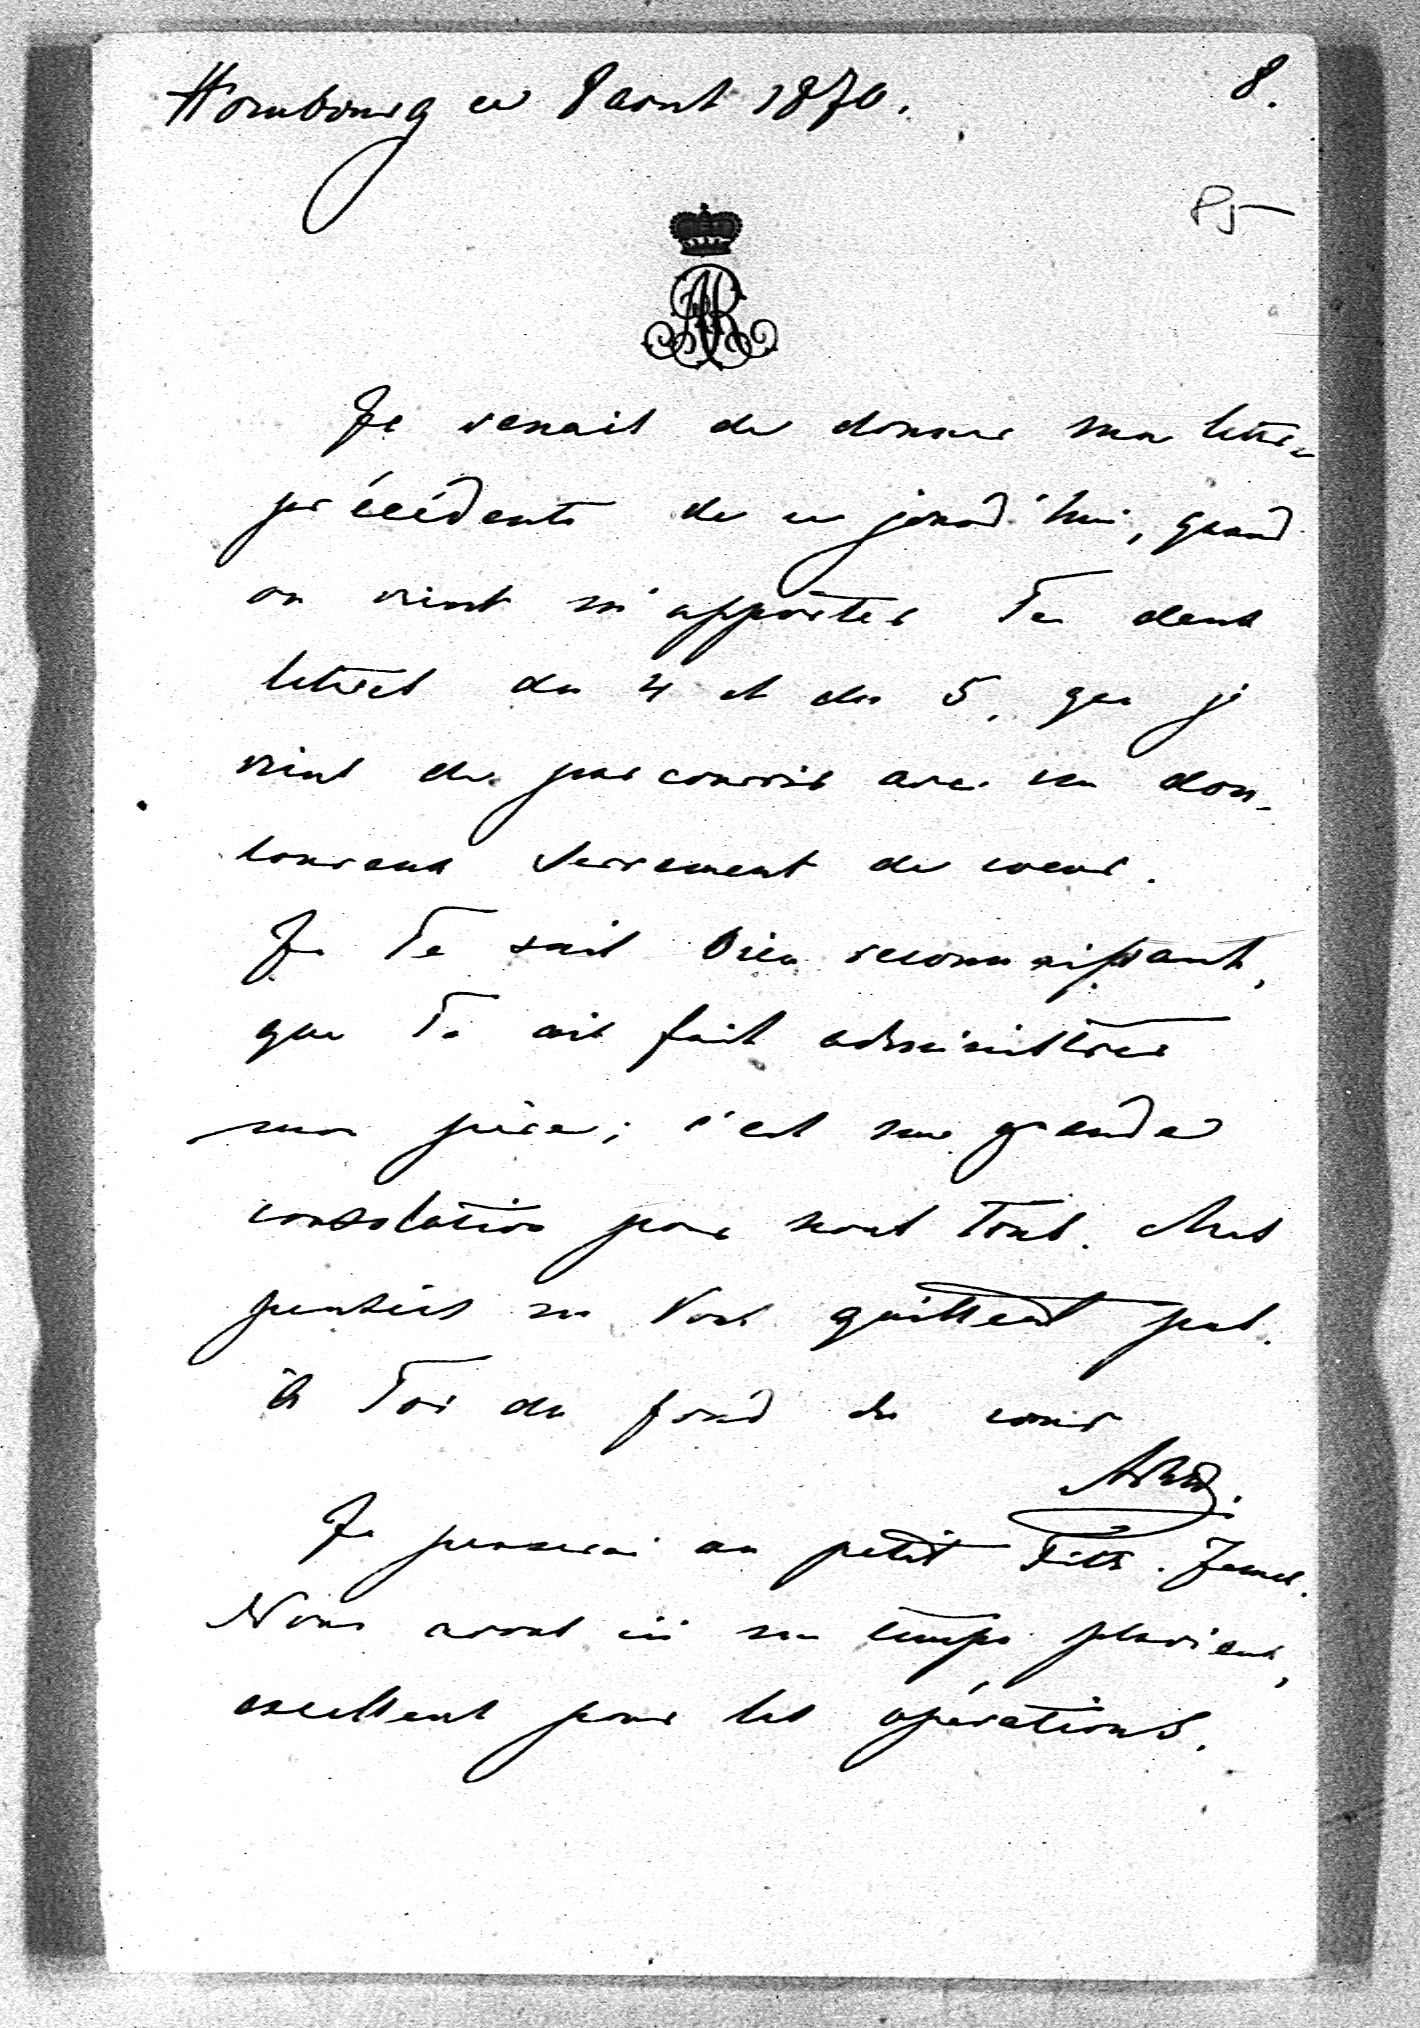 Hombourg ce 8 aout 1870.
8.
85
AR
Je venais de donner ma lettre
précédente de ce jourd'hui, quand
on vint m'apporter Tes deux
lettres du 4 et du 5, que je
vins de parcourir avec un dou-
loureux serrement de coeur.
Je Te suis bien reconnaissant,
que Tu ais fait administrer
mon père; c'est une grande
consolation pour nous tous. Mes
pensées ne Vous quittent pas.
à Toi du fond du coeur
Je penserai au petit Fitz-James.
Nous avons ici un temps pluvieux,
excellent pour les opérations.